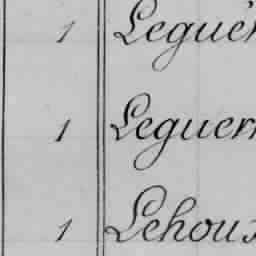 1 Leguén
1 Leguern
1 Lehoux